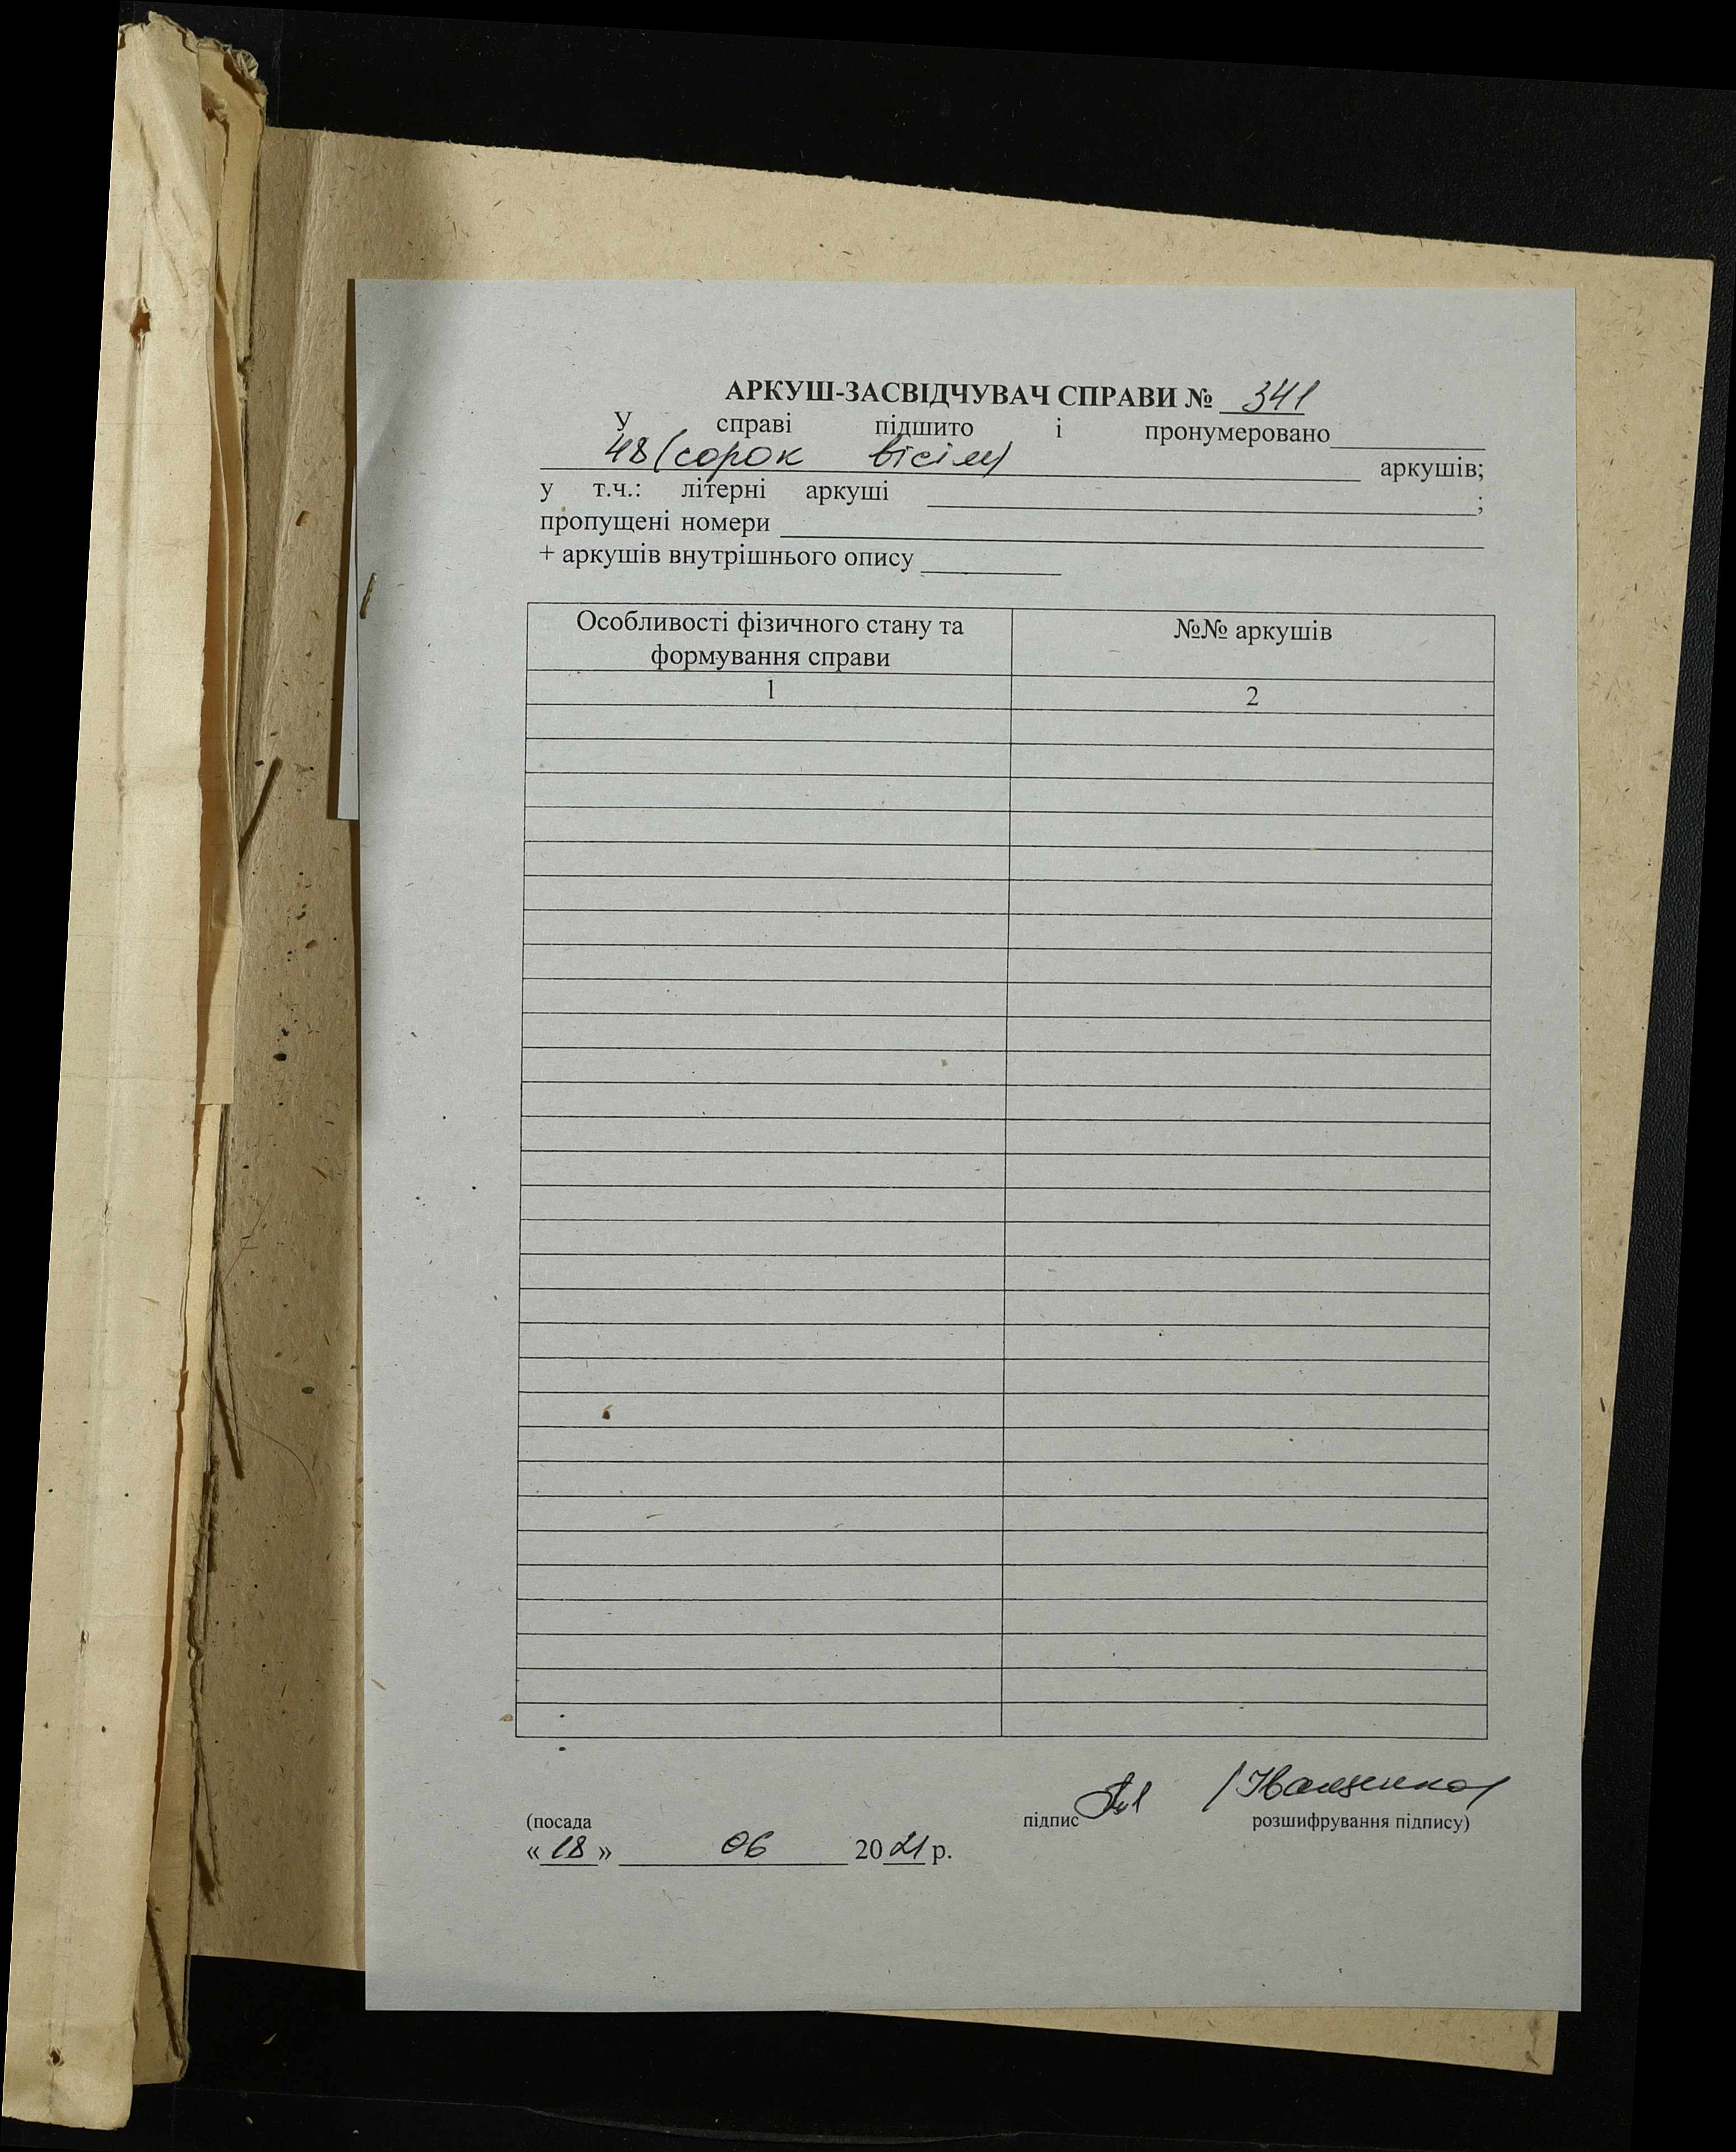 АРКУШ-ЗАСВІДЧУВАЧ СПРАВИ № 341
У справі підшито і пронумеровано
48 (сорок вісім) аркушів;
у т.ч.: літерні аркуші ;
пропущені номери
+ аркушів внутрішнього опису
Особливості фізичного стану та
формування справи
№№ аркушів
1 2
(Іващенко)
(посада підпис розшифрування підпису)
« 18 » 06 20 21 р.